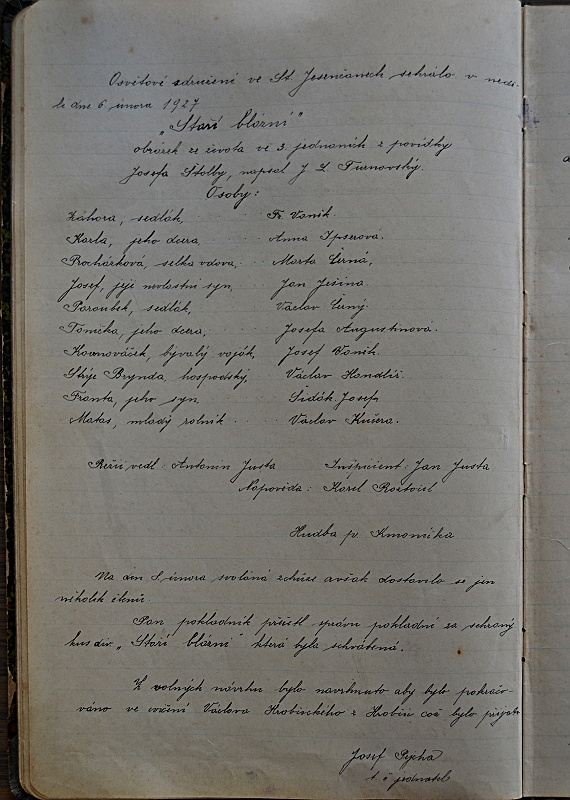 Osvětové sdružení ve St. Jesenčanech sehrálo v nedě-
le dne 6. února 1927
„Staří blázni"
obrázek ze života ve 3 jednáních z povídky
Josefa Štolby, napsal J. L. Turnovský.
Osoby:
Záhora, sedlák, Fr. Vaník.
Karla, jeho dcera, Anna Ipserová.
Procházková, selka vdova, Marta Černá,
Josef, její nevlastní syn, Jan Ješina.
Paroubek, sedlák, Václav Černý.
Tonička, jeho dcera, Josefa Augustinová.
Kovnováček, bývalý voják, Josef Vaník.
Strýc Brynda, hospodský, Václav Handlíř.
Franta, jeho syn, Sidák Josef.
Matas, mladý rolník Václav Kučera.
Režii vedl: Antonín Justa Inspicient: Jan Justa
Napověda: Karel Roztočil
Hudba p. Kmoníčka
Na den 8. února svolána schůze avšak dostavilo se jen
několik členů.
Pan pokladník přečetl zprávu pokladní za sehraný
kus div. „Staří blázni" která byla schválena.
Z volných návrhů bylo navrhnuto aby bylo pokračo-
váno ve cvičení Václava Hrobčického z Hrobčic což bylo přijato
Josef Pycha
t. č. jednatel